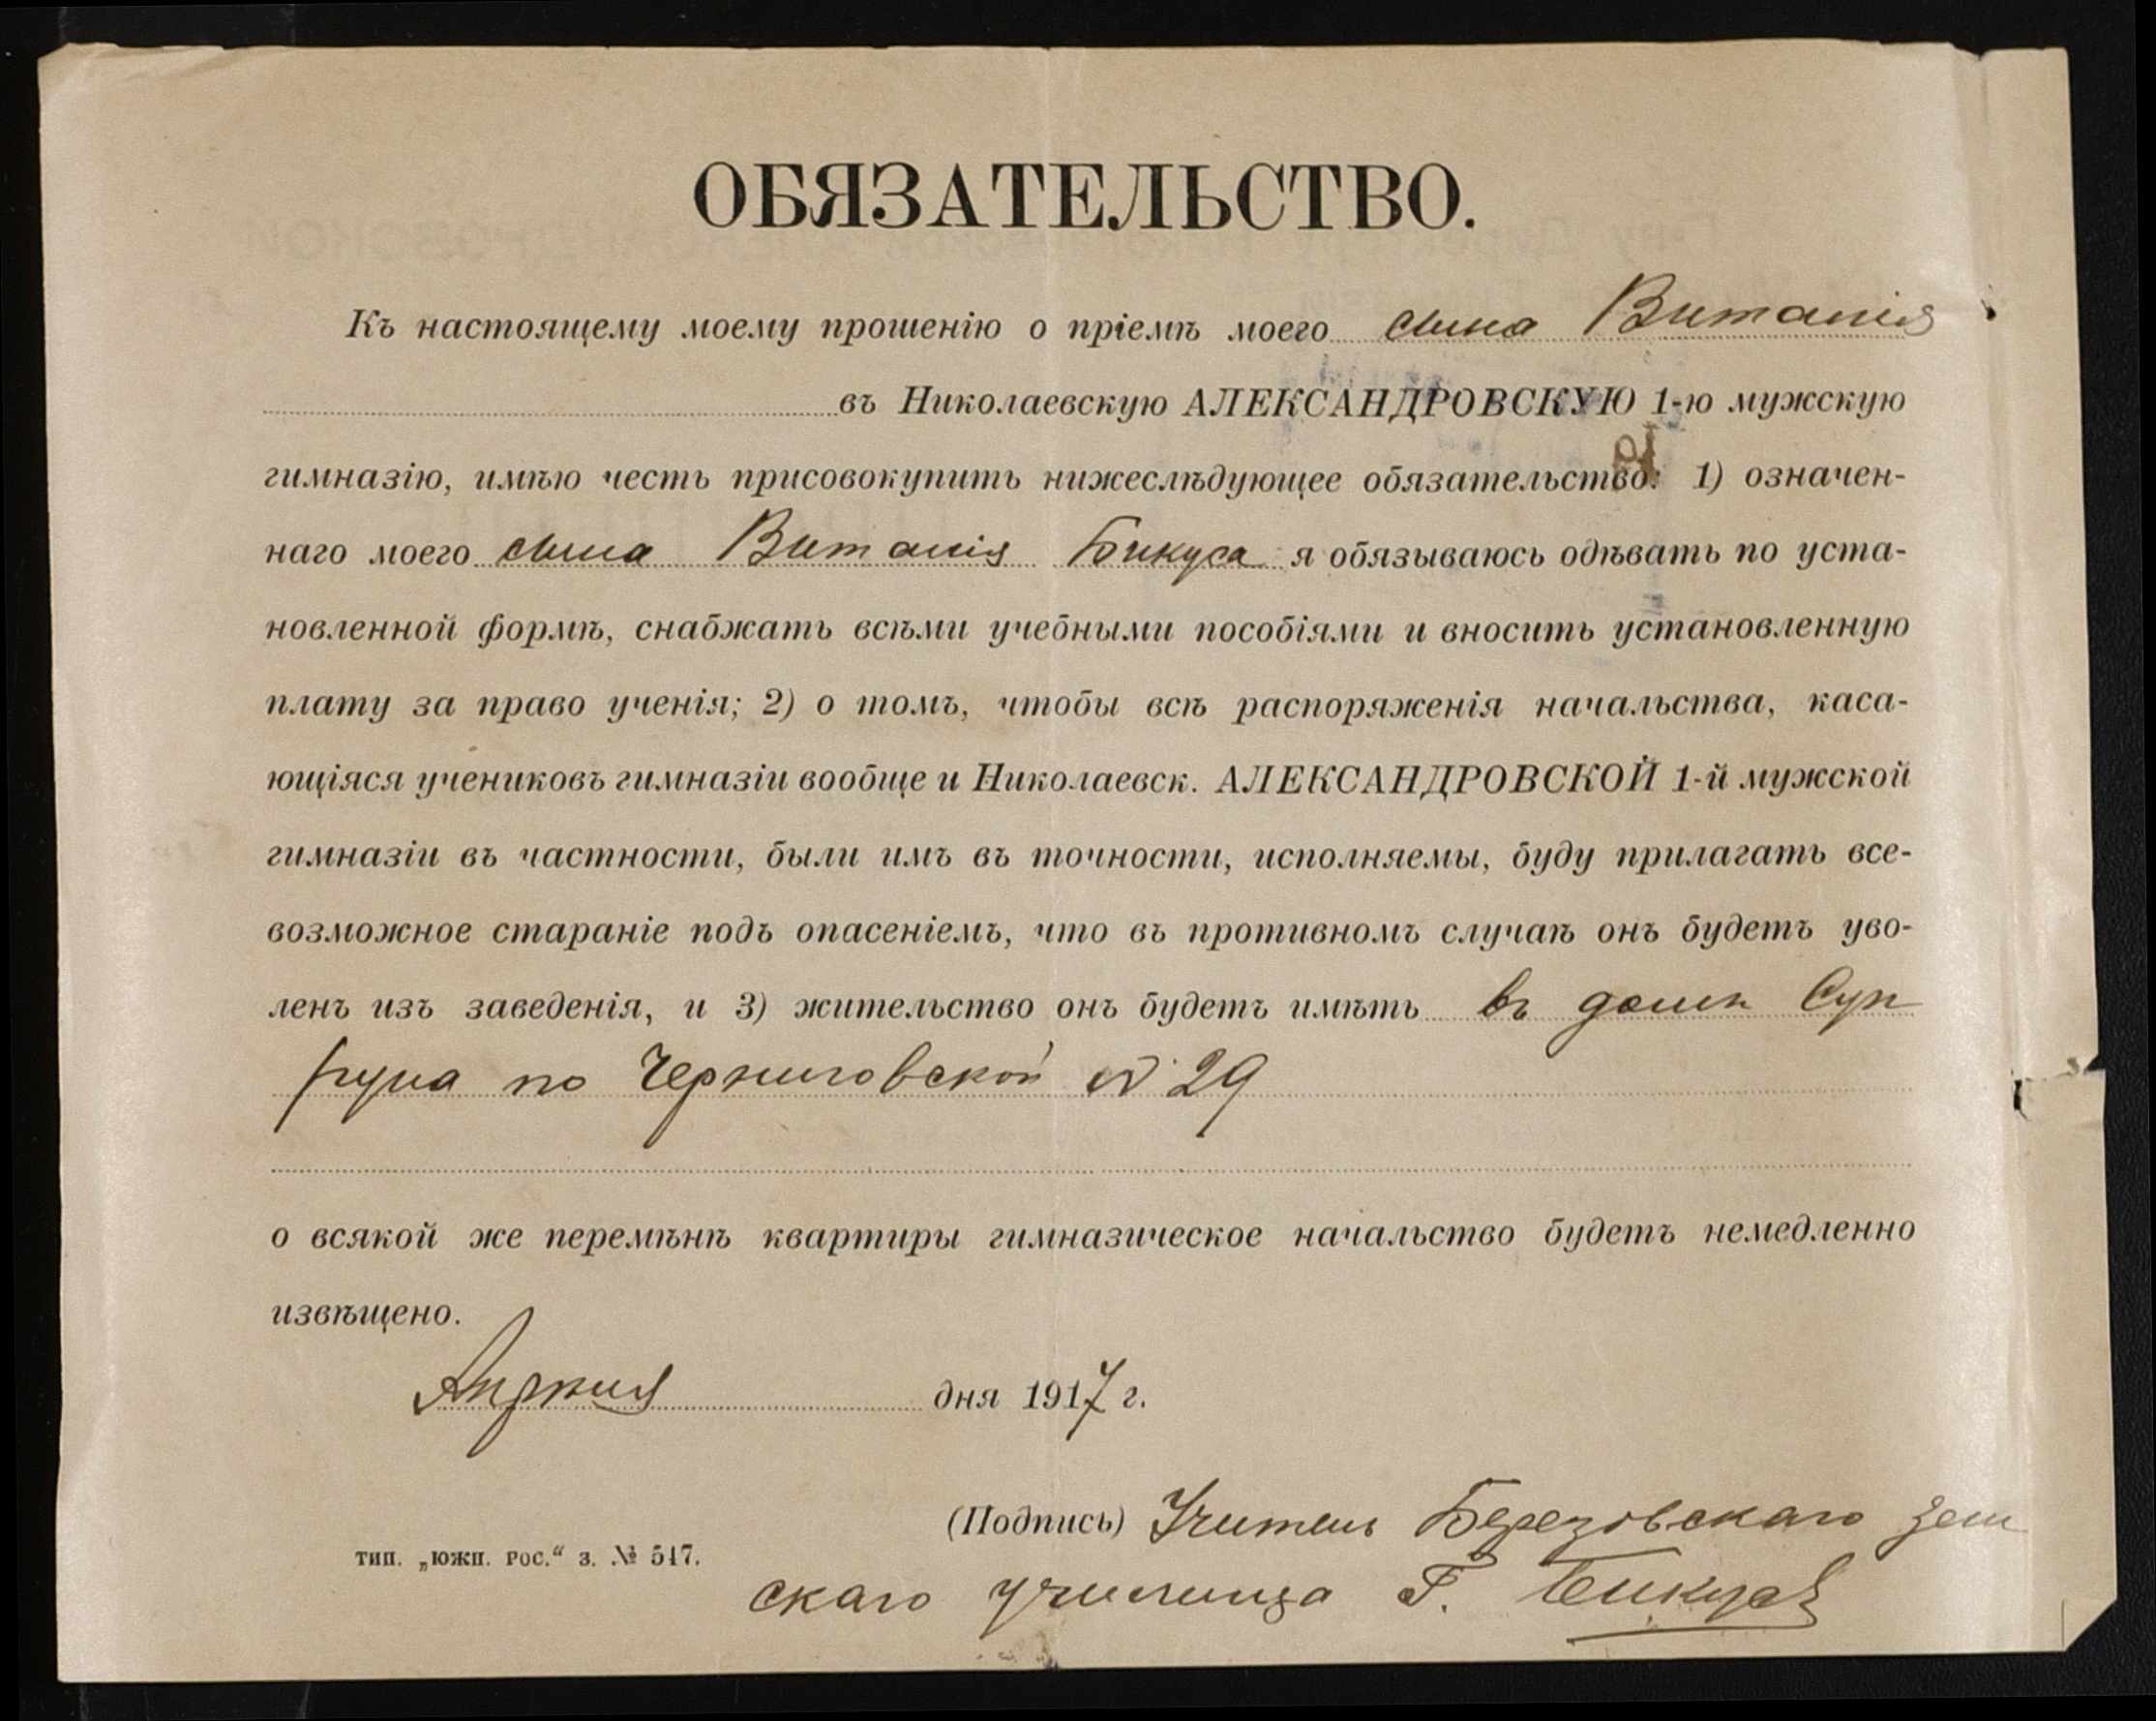 ОБЯЗАТЕЛЬСТВО.
Къ настоящему моему прошенію о пріемѣ моего сына Виталія
въ Николаевскую АЛЕКСАНДРОВСКУЮ 1-ю мужскую
гимназію, имѣю честь присовокупить нижеслѣдующее обязательство: 1) означен-
наго моего сына Виталія Бикуса я обязываюсь одѣвать по уста-
новленной формѣ, снабжать всѣми учебными пособіями и вносить установленную
плату за право ученія; 2) о томъ, чтобы всѣ распоряженія начальства, каса-
ющіяся учениковъ гимназіи вообще и Николаевск. АЛЕКСАНДРОВСКОЙ 1-й мужской
гимназіи въ частности, были имъ въ точности, исполняемы, буду прилагать все-
возможное стараніе подъ опасеніемъ, что въ противномъ случаѣ онъ будетъ уво-
ленъ изъ заведенія, и 3) жительство онъ будетъ имѣть въ домѣ Суп
руна по Черниговской № 29
о всякой же перемѣнѣ квартиры гимназическое начальство будетъ немедленно
извѣщено.
Апрѣля дня 1917 г.
(Подпись) Учитель Березовскаго зем
тип. „южн. рос.“ з. № 517.
скаго училища Г. Бикусъ